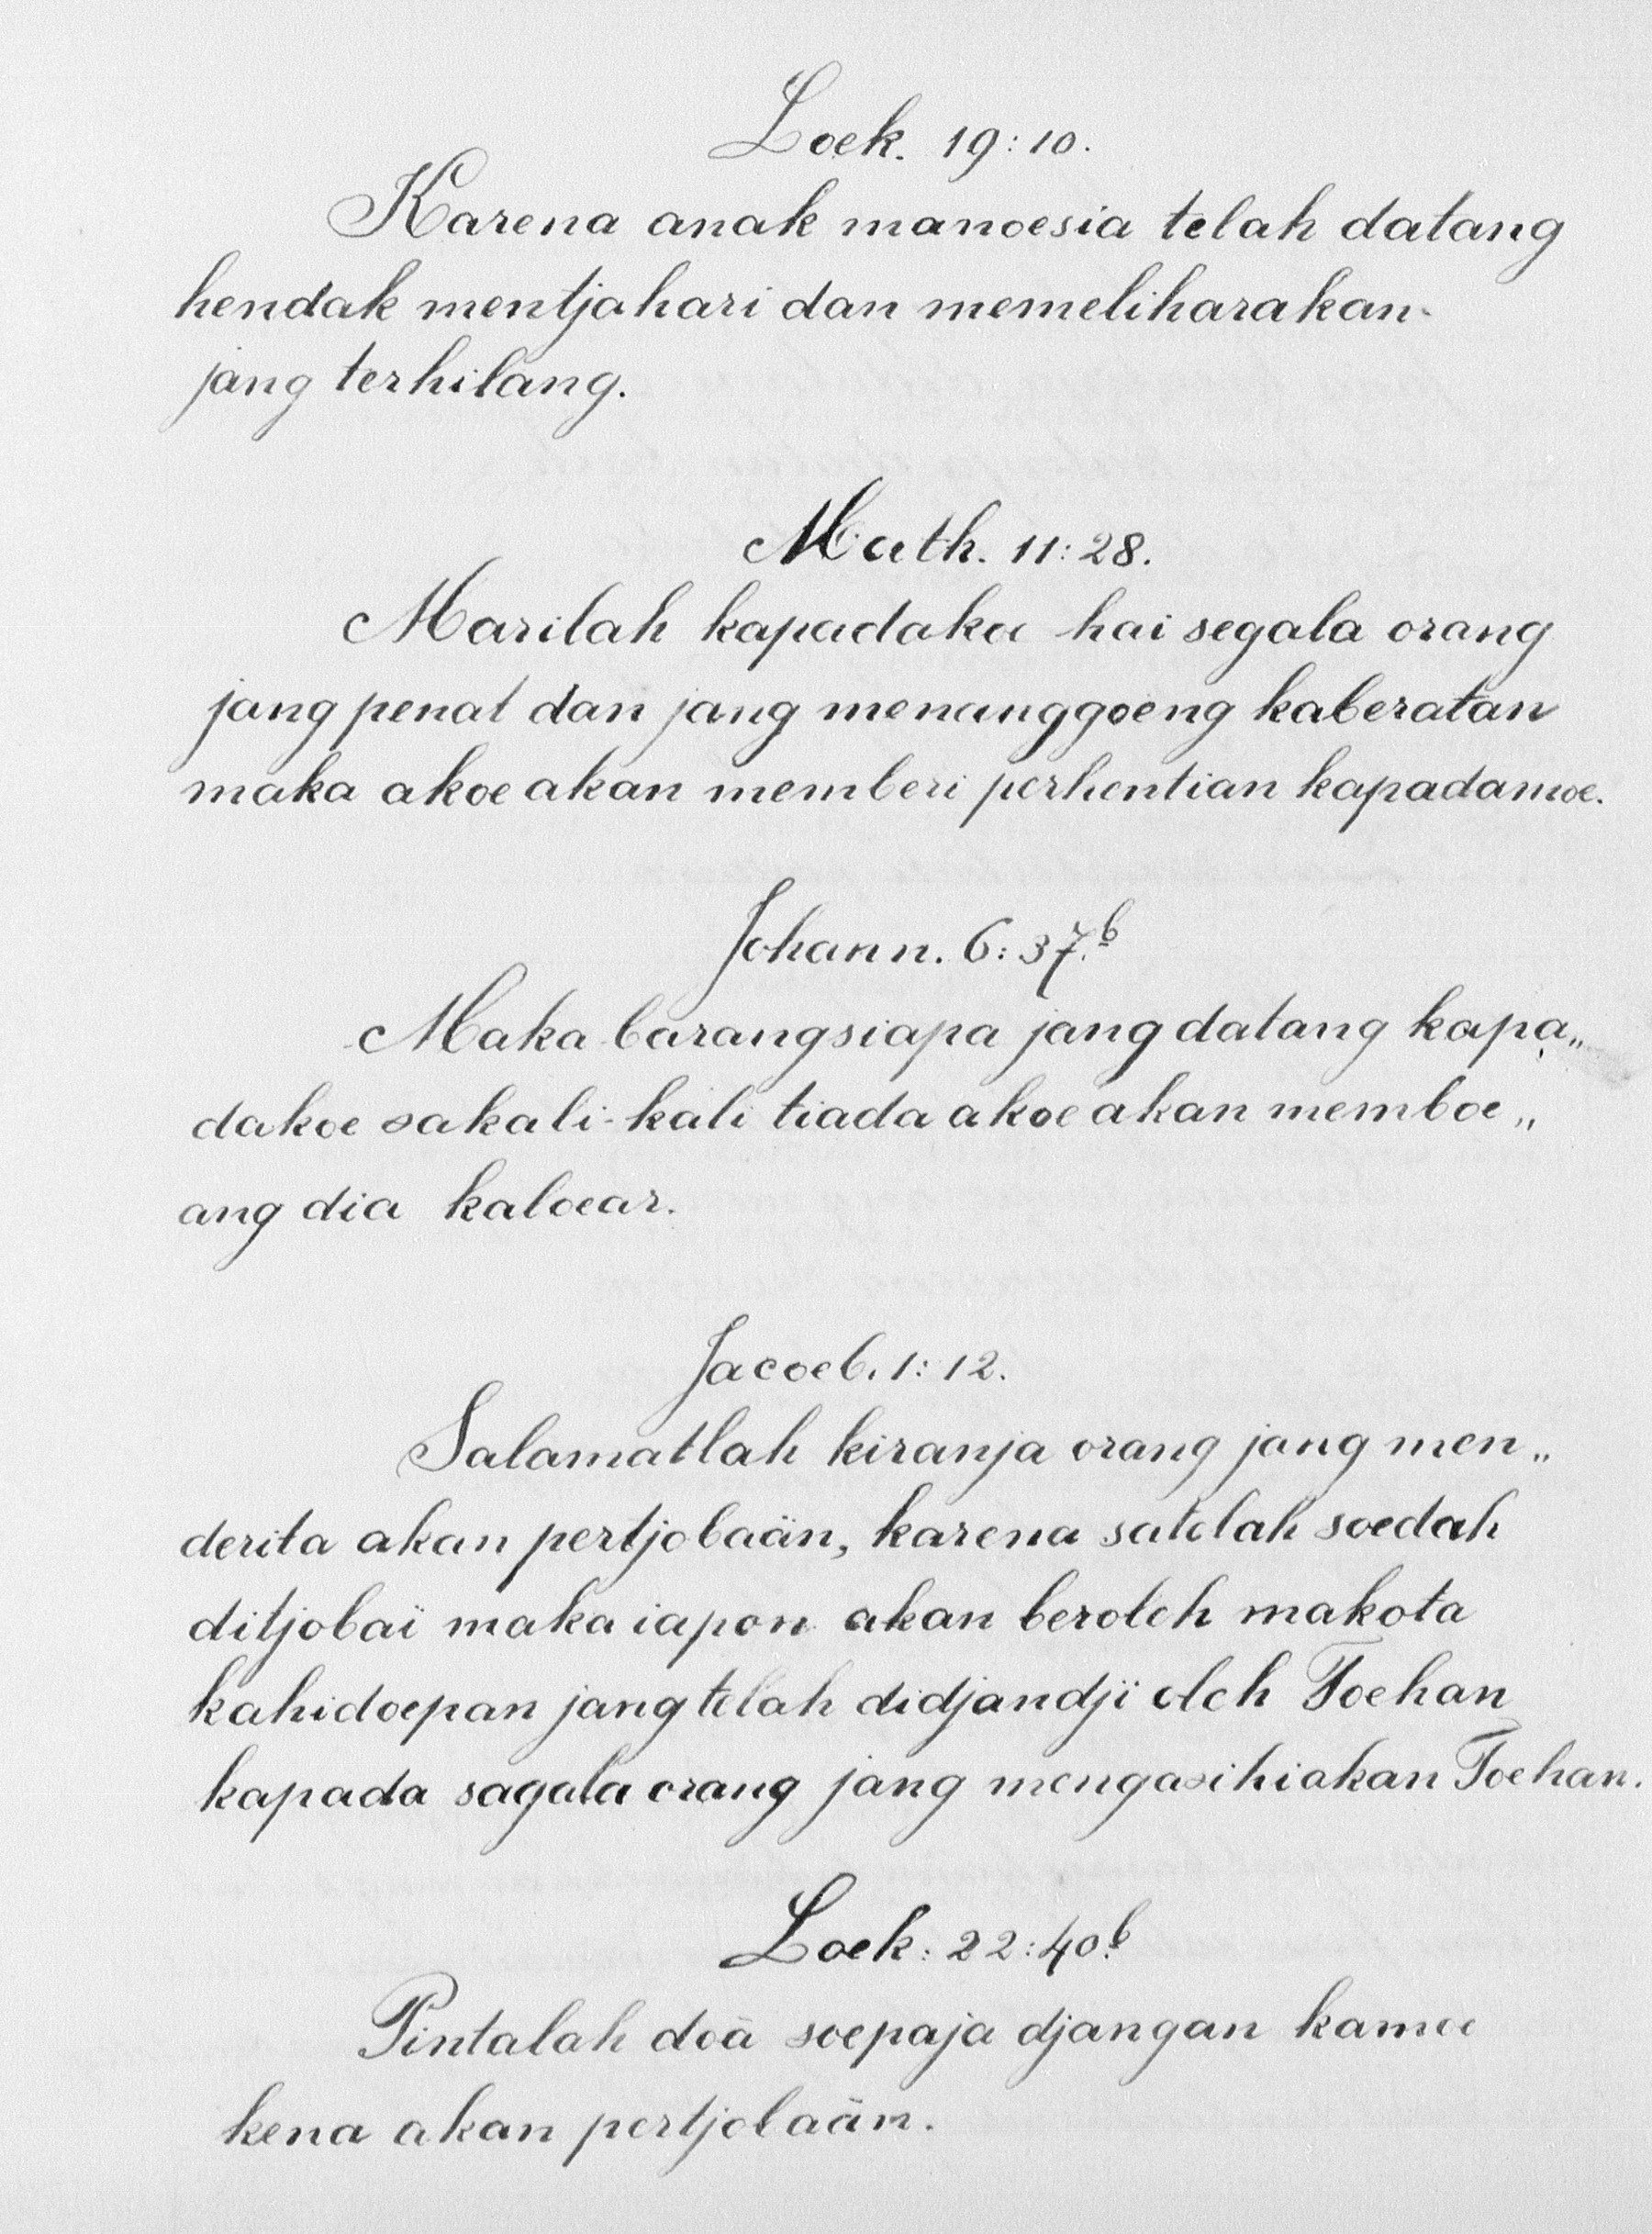 Loek. 19:10.
Karena anak manoesia telah datang
hendak mentjahari dan memeliharakan
jang terhilang.
Math. 11:28.
Marilah kapadakoe hai segala orang
jang penat dan jang menanggoeng kaberatan
maka akoe akan memberi perhentian kapadamoe.
Johann. 6:37.b
Maka barangsiapa jang datang kapa„
dakoe sakali-kali tiada akoe akan memboe„
ang dia kaloear.
Jacoeb. 1:12.
Salamatlah kiranja orang jang men„
derita akan pertjobaän, karena satelah soedah
ditjobaï maka iapon akan beroleh makota
kahidoepan jang telah didjandji oleh Toehan
kapada sagala orang jang mengasihiakan Toehan.
Loek: 22:40.b
Pintalah doä soepaja djangan kamoe
kena akan pertjobaän.